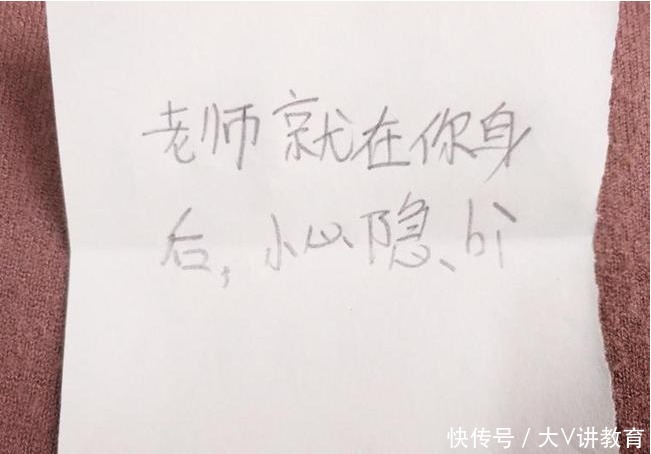 老师就在你身
后,小心隐bi
快传号 / 大V讲教育